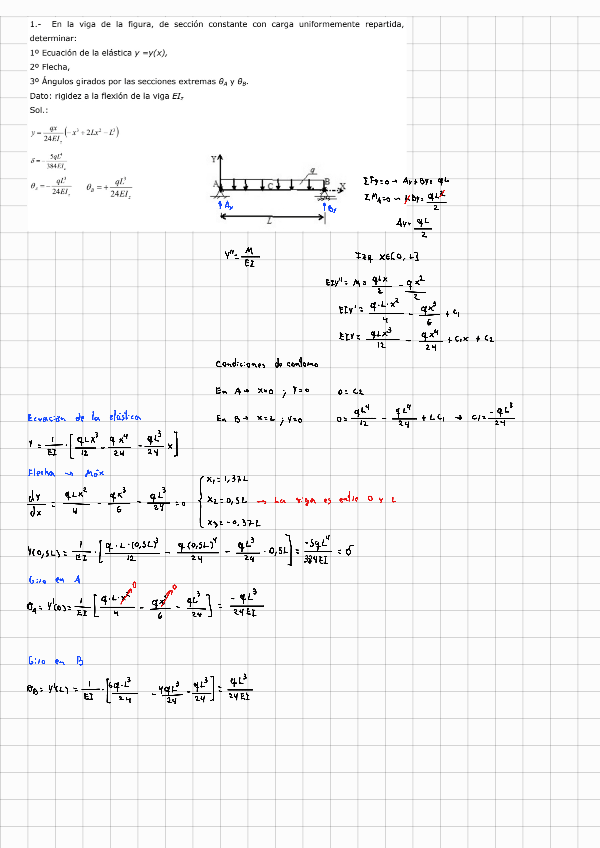 1.- En la viga de la figura, de sección constante con carga uniformemente repartida,
determinar:
1º Ecuación de la elástica y =y(x),
2º Flecha,
3º Ángulos girados por las secciones extremas θA y θB.
Dato: rigidez a la flexión de la viga EIz
Sol.:
y = qx/24EIz (−x³ + 2Lx² − L³)
δ = − 5qL⁴/384EIz
θA = − qL³/24EIz θB = + qL³/24EIz
Y q
A C B X
Ay By
L
ΣFy=0 → Ay + By = qL
ΣMA=0 → L By = qL²/2
Ay = qL/2
Y'' = M/EI
Izq x∈[0, L]
EIy'' = M = qLx/2 − qx²/2
EIy' = q·L·x²/4 − qx³/6 + C1
EIY = qLx³/12 − qx⁴/24 + C1x + C2
Condiciones de contorno
En A → x=0 ; Y=0 0 = C2
En B → x=L ; y=0 0 = qL⁴/12 − qL⁴/24 + LC1 → C1 = −qL³/24
Ecuación de la elástica
Y = 1/EI · [qLx³/12 − qx⁴/24 − qL³/24 x]
Flecha → Máx
dy/dx = qLx²/4 − qx³/6 − qL³/24 = 0
x1 = 1,37L
x2 = 0,5L → La viga es entre 0 y L
x3 = −0,37L
Y(0,5L) = 1/EI · [q·L·(0,5L)³/12 − q(0,5L)⁴/24 − qL³/24 · 0,5L] = −5qL⁴/384EI = δ
Giro en A
θA = Y'(0) = 1/EI [q·L·x²/4 − qx³/6 − qL³/24] = −qL³/24EI
0 0
Giro en B
θB = Y'(L) = 1/EI · [6q·L³/24 − 4qL³/24 − qL³/24] = qL³/24EI